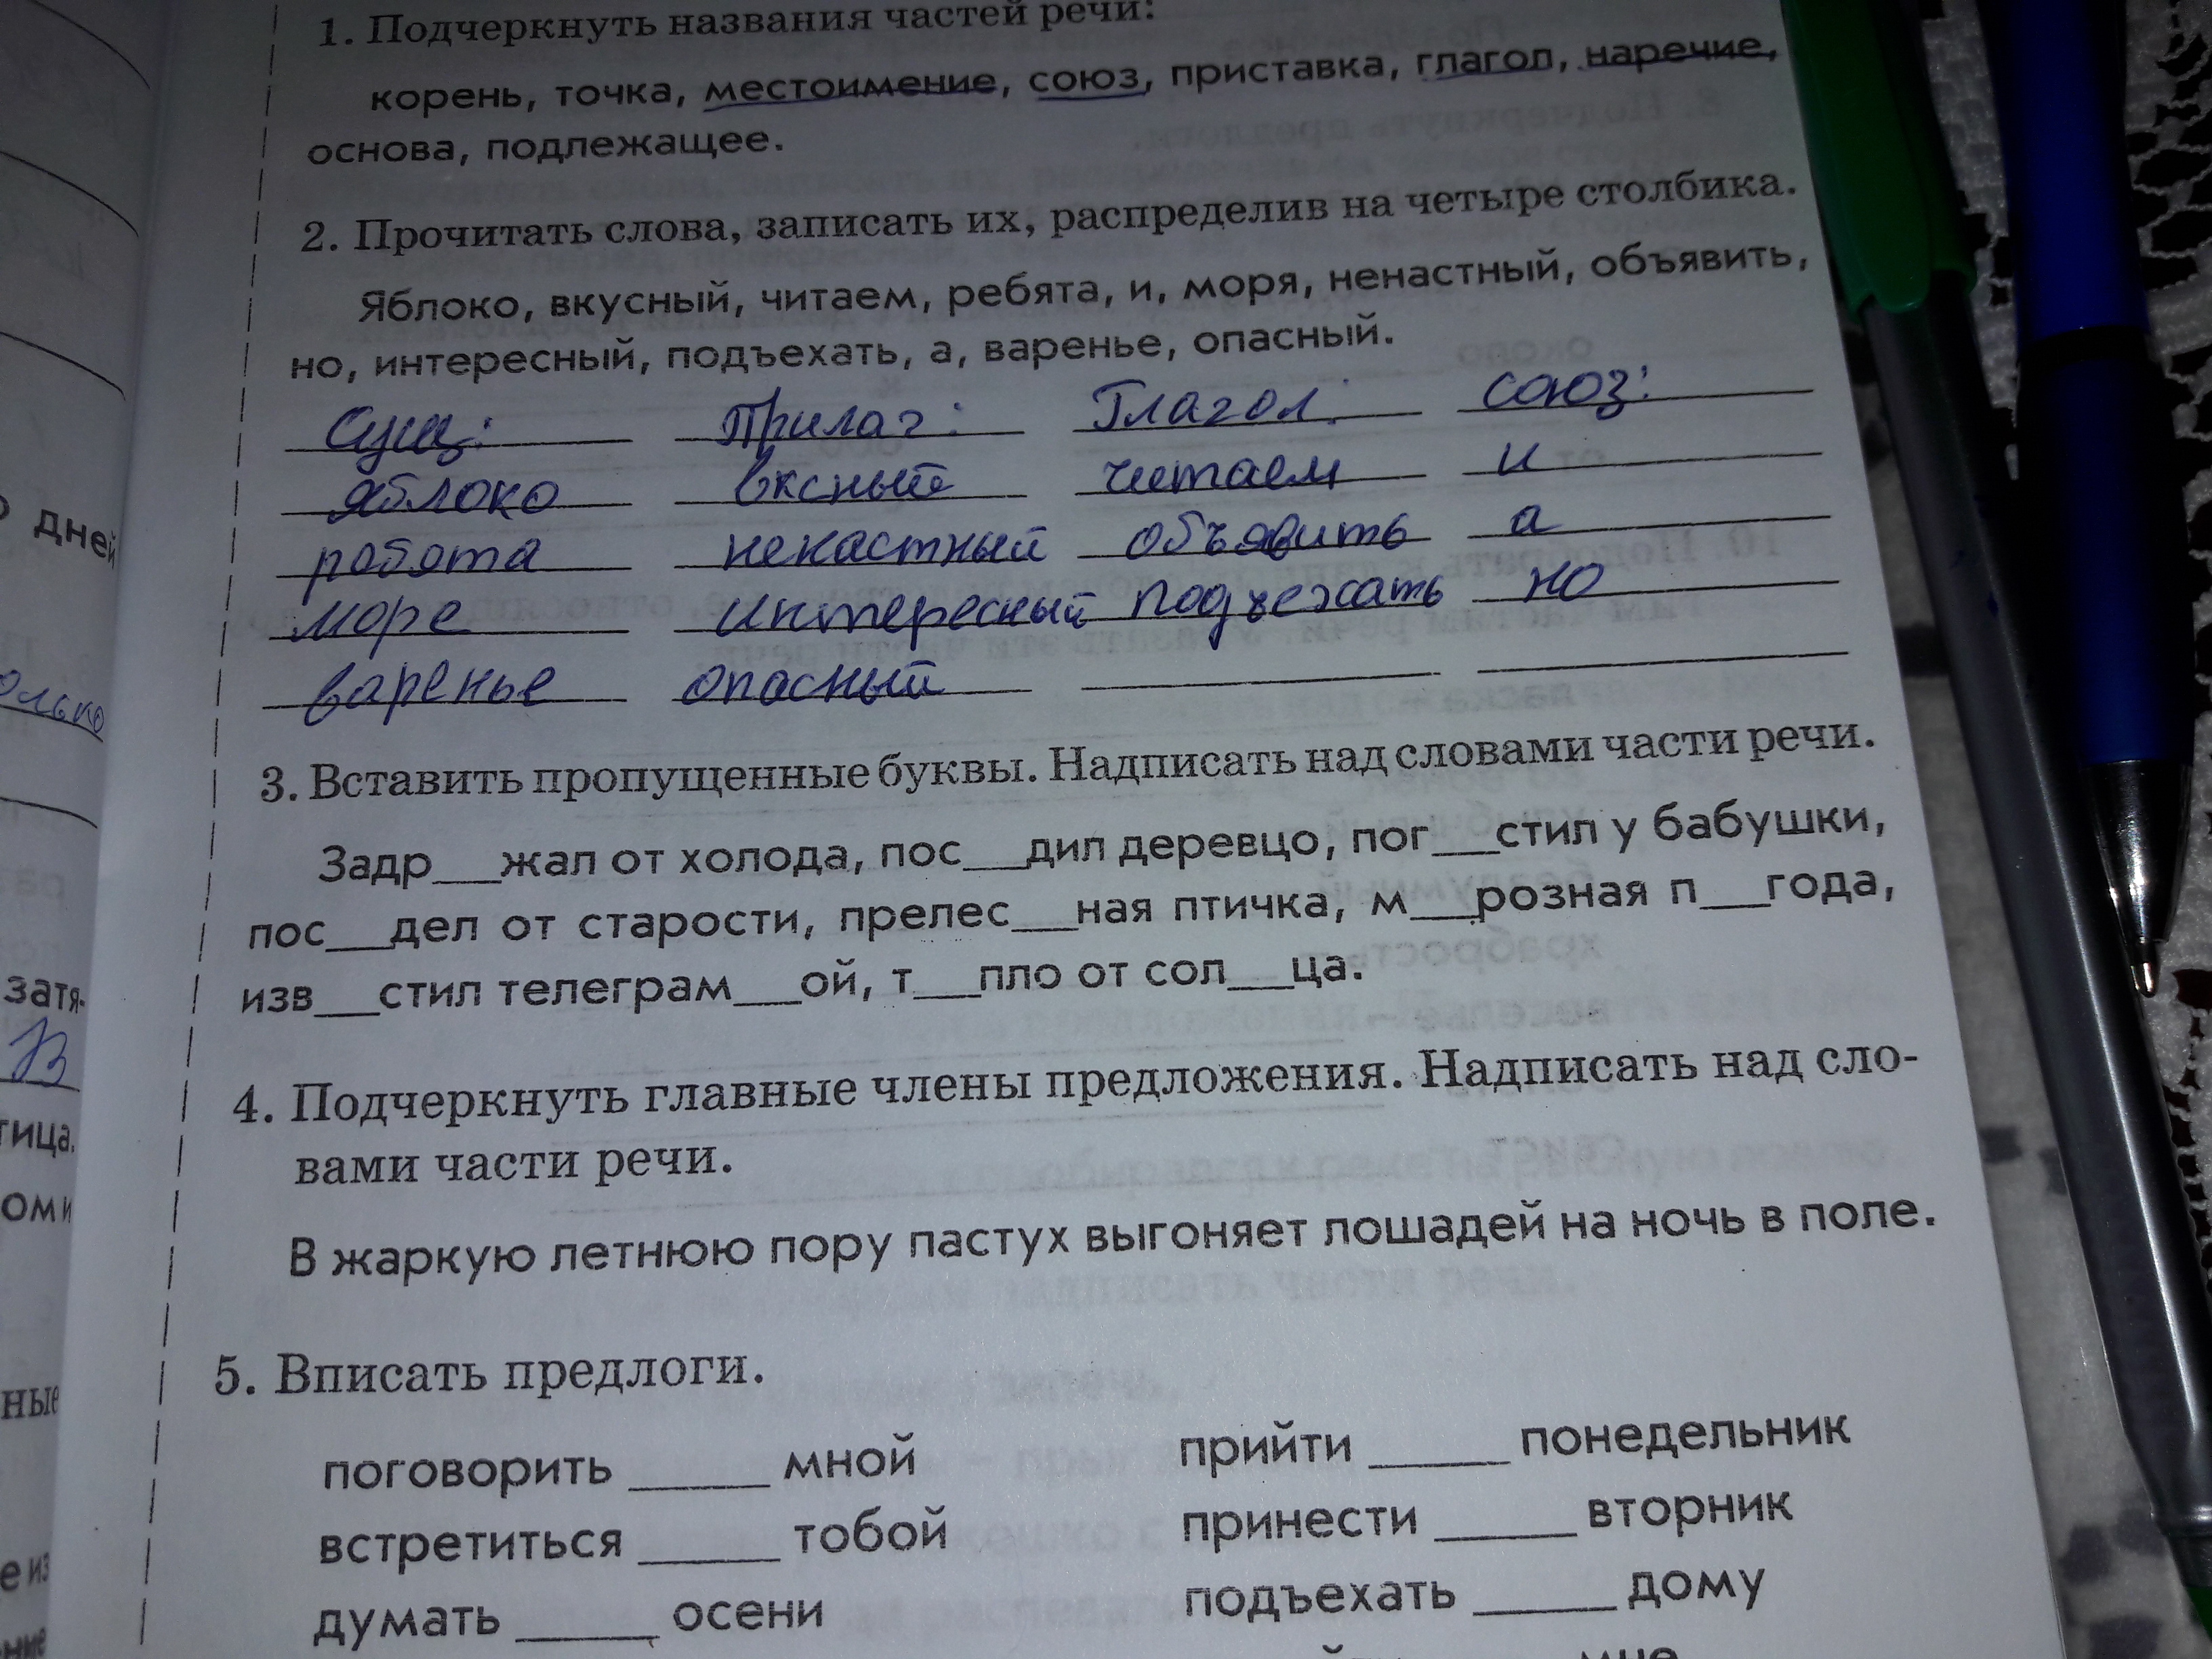 1. Подчеркнуть названия частей речи:
корень, точка, местоимение, союз, приставка, глагол, наречие,
основа, подлежащее.
2. Прочитать слова, записать их, распределив на четыре столбика.
Яблоко, вкусный, читаем, ребята, и, моря, ненастный, объявить,
но, интересный, подъехать, а, варенье, опасный.
Сущ: Прилаг: Глагол: союз:
яблоко вксный читаем и
робота ненастный объявить а
море интересный подъехать но
варенье опасный
3. Вставить пропущенные буквы. Надписать над словами части речи.
Задр___жал от холода, пос___дил деревцо, пог___стил у бабушки,
пос___дел от старости, прелес___ная птичка, м___розная п___года,
изв___стил телеграм___ой, т___пло от сол___ца.
4. Подчеркнуть главные члены предложения. Надписать над сло-
вами части речи.
В жаркую летнюю пору пастух выгоняет лошадей на ночь в поле.
5. Вписать предлоги.
поговорить ______ мной прийти ______ понедельник
встретиться ______ тобой принести ______ вторник
думать ______ осени подъехать ______ дому
мне
дней
олько
затя-
тица.
ом и
ные
е из